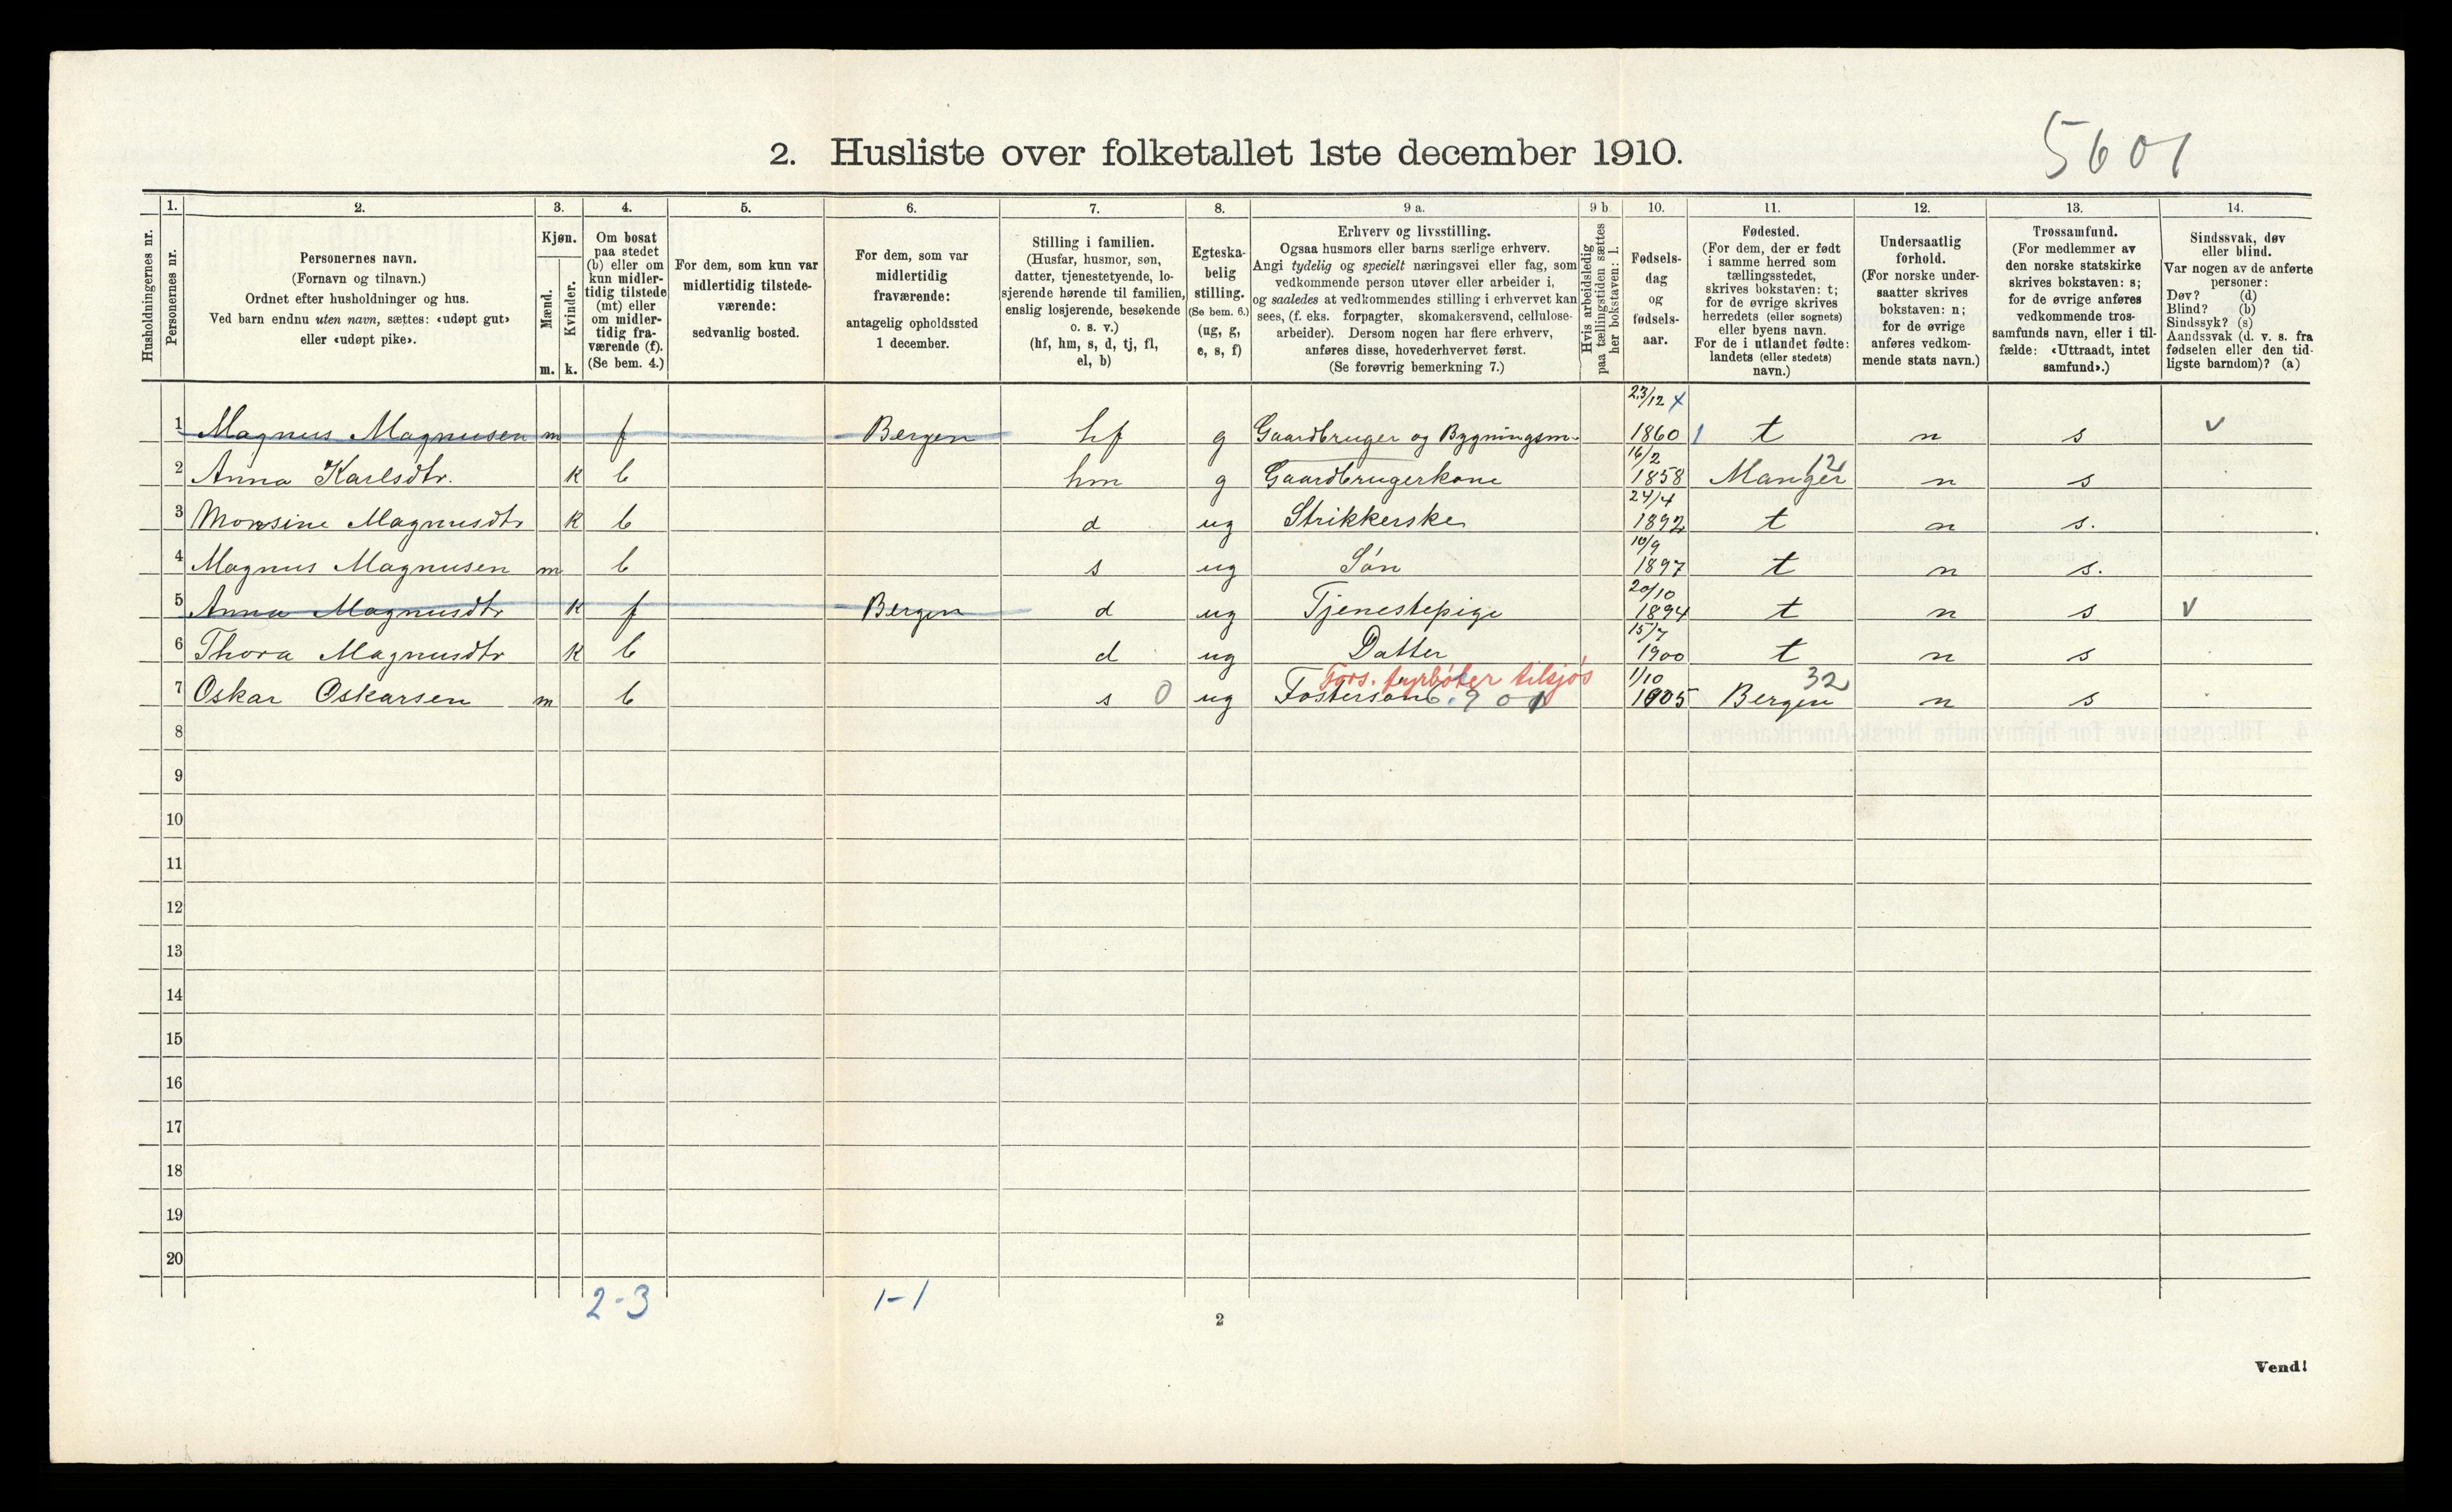 2. Husliste over folketallet 1ste december 1910.
5601
Husholdningernes nr.
1.
Personernes nr.
2.
Personernes navn.
(Fornavn og tilnavn.)
Ordnet efter husholdninger og hus.
Ved barn endnu uten navn, sættes: «udøpt gut»
eller «udøpt pike».
3.
Kjøn.
Mænd.
Kvinder.
m. k.
4.
Om bosat
paa stedet
(b) eller om
kun midler-
tidig tilstede
(mt) eller
om midler-
tidig fra-
værende (f).
(Se bem. 4.)
5.
For dem, som kun var
midlertidig tilstede-
værende:
sedvanlig bosted.
6.
For dem, som var
midlertidig
fraværende:
antagelig opholdssted
1 december.
7.
Stilling i familien.
(Husfar, husmor, søn,
datter, tjenestetyende, lo-
sjerende hørende til familien,
enslig losjerende, besøkende
o. s. v.)
(hf, hm, s, d, tj, fl,
el, b)
8.
Egteska-
belig
stilling.
(Se bem. 6.)
(ug, g,
e, s, f)
9 a.
Erhverv og livsstilling.
Ogsaa husmors eller barns særlige erhverv.
Angi tydelig og specielt næringsvei eller fag, som
vedkommende person utøver eller arbeider i,
og saaledes at vedkommendes stilling i erhvervet kan
sees, (f. eks. forpagter, skomakersvend, cellulose-
arbeider). Dersom nogen har flere erhverv,
anføres disse, hovederhvervet først.
(Se forøvrig bemerkning 7.)
9 b
Hvis arbeidsledig
paa tællingstiden sættes
her bokstaven: l.
10.
Fødsels-
dag
og
fødsels-
aar.
11.
Fødested.
(For dem, der er født
i samme herred som
tællingsstedet,
skrives bokstaven: t;
for de øvrige skrives
herredets (eller sognets)
eller byens navn.
For de i utlandet fødte:
landets (eller stedets)
navn.)
12.
Undersaatlig
forhold.
(For norske under-
saatter skrives
bokstaven: n;
for de øvrige
anføres vedkom-
mende stats navn.)
13.
Trossamfund.
(For medlemmer av
den norske statskirke
skrives bokstaven: s;
for de øvrige anføres
vedkommende tros-
samfunds navn, eller i til-
fælde: «Uttraadt, intet
samfund».)
14.
Sindssvak, døv
eller blind.
Var nogen av de anførte
personer:
Døv? (d)
Blind? (b)
Sindssyk? (s)
Aandssvak (d. v. s. fra
fødselen eller den tid-
ligste barndom)? (a)
1 Magnus Magnusen m f Bergen hf g Gaardbruger og Bygningsm. 23/12 x 1860 1 t n s v
2 Anna Karlsdtr. k b hm g Gaardbrugerkone 16/2 1858 Manger 12 n s
3 Monsine Magnusdtr k b d ug Strikkerske 24/4 1892 t n s.
4 Magnus Magnusen m b s ug Søn 10/9 1897 t n s.
5 Anna Magnusdtr k f Bergen d ug Tjenestepige 20/10 1894 t n s v
6 Thora Magnusdtr k b d ug Datter 15/7 1900 t n s
Fors. fyrbøter tilsjøs
7 Oskar Oskarsen m b s 0 ug Fosterson 6.901 1/10 1905 Bergen 32 n s
8
9
10
11
12
13
14
15
16
17
18
19
20
2-3 1-1
2
Vend!